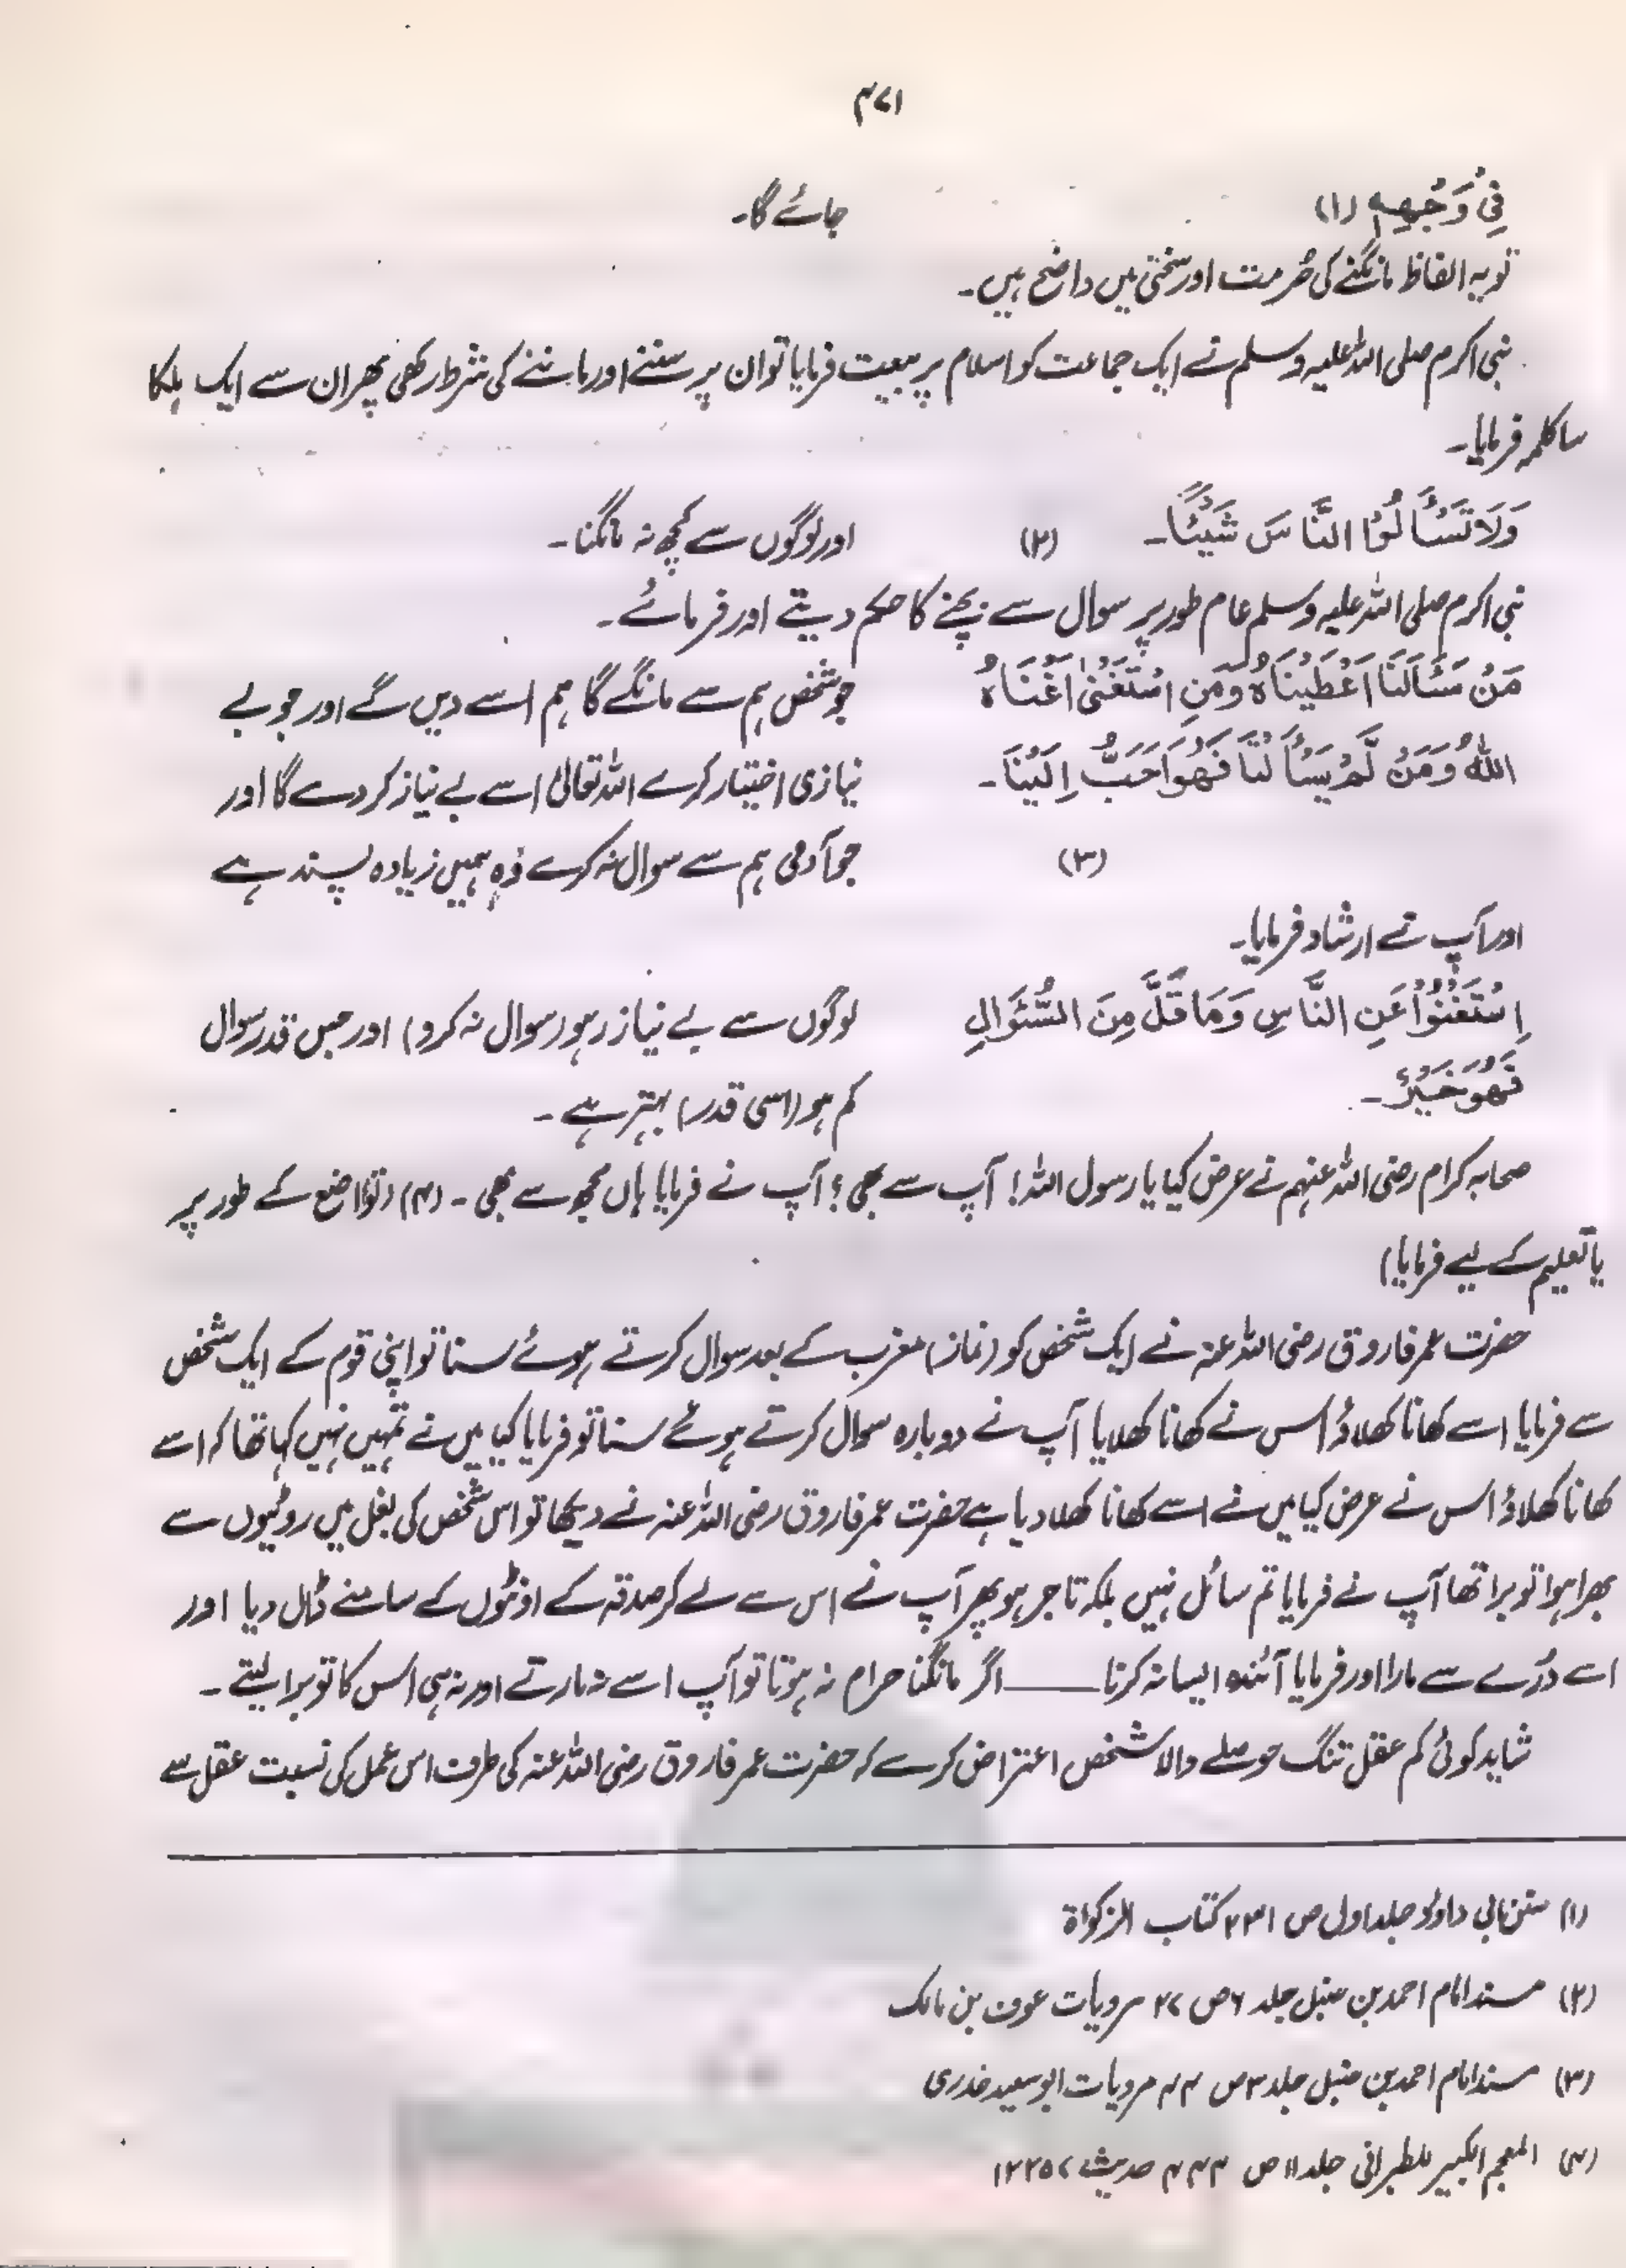 ۴۷۱
فِیْ وَجْهِهٖ (۱) جائے گا۔
تو یہ الفاظ مانگنے کی حُرمت اور سختی میں واضح ہیں۔
نبی اکرم صلی اللہ علیہ وسلم نے ایک جماعت کو اسلام پر بیعت فرمایا تو ان پر سننے اور ماننے کی شرط رکھی پھر ان سے ایک ہلکا
سا کلمہ فرمایا۔
وَلَا تَسْأَلُوا النَّاسَ شَیْئًا۔ (۲) اور لوگوں سے کچھ نہ مانگنا۔
نبی اکرم صلی اللہ علیہ وسلم عام طور پر سوال سے بچنے کا حکم دیتے اور فرمائے۔
مَنْ سَئَالَنَا اَعْطَیْنَاهُ وَمَنِ اسْتَغْنٰی اَغْنَاهُ جو شخص ہم سے مانگے گا ہم اسے دیں گے اور جو بے
اللّٰهُ وَمَنْ لَّمْ یَسْأَلْنَا فَهُوَ اَحَبُّ اِلَیْنَا۔ نیازی اختیار کرے اللہ تعالیٰ اسے بے نیاز کر دے گا اور
(۳) جو آدمی ہم سے سوال نہ کرے وُہ ہمیں زیادہ پسند ہے
اور آپ نے ارشاد فرمایا۔
اِسْتَغْنُوْا عَنِ النَّاسِ وَمَا قَلَّ مِنَ السُّئَوَالِ لوگوں سے بے نیاز رہو (سوال نہ کرو) اور جس قدر سوال
فَهُوَ خَیْرٌ۔ کم ہو (اسی قدر) بہتر ہے۔
صحابہ کرام رضی اللہ عنہم نے عرض کیا یا رسول اللہ! آپ سے بھی؟ آپ نے فرمایا ہاں مجھ سے بھی۔ (۴) (تواضع کے طور پر
یا تعلیم کے لیے فرمایا)
حضرت عمر فاروق رضی اللہ عنہ نے ایک شخص کو (نماز) مغرب کے بعد سوال کرتے ہوئے سنا تو اپنی قوم کے ایک شخص
سے فرمایا اسے کھانا کھلاؤ اس نے کھانا کھلایا آپ نے دوبارہ سوال کرتے ہوئے سنا تو فرمایا کیا میں نے تمہیں نہیں کہا تھا کہ اسے
کھانا کھلاؤ اس نے عرض کیا میں نے اسے کھانا کھلا دیا ہے حضرت عمر فاروق رضی اللہ عنہ نے دیکھا تو اس شخص کی بغل میں روٹیوں سے
بھرا ہوا توبرا تھا آپ نے فرمایا تم سائل نہیں بلکہ تاجر ہو پھر آپ نے اس سے لے کر صدقہ کے اونٹوں کے سامنے ڈال دیا اور
اسے دُرّے سے مارا اور فرمایا آئندہ ایسا نہ کرنا ـــــ اگر مانگنا حرام نہ ہوتا تو آپ اسے نہ مارتے اور نہ ہی اس کا توبرا لیتے۔
شاید کوئی کم عقل تنگ حوصلے والا شخص اعتراض کرے کہ حضرت عمر فاروق رضی اللہ عنہ کی طرف اس عمل کی نسبت عقل سے
(۱) سنن ابی داؤد جلد اول ص ۲۳۱ کتاب الزکواۃ
(۲) مسند امام احمد بن حنبل جلد ۶ ص ۲۷ مرویات عوف بن مالک
(۳) مسند امام احمد بن حنبل جلد ۳ ص ۴۴ مرویات ابو سعید خدری
(۴) المعجم الکبیر للطبرانی جلد ۱۱ ص ۴۴۴ حدیث ۱۲۲۵۷